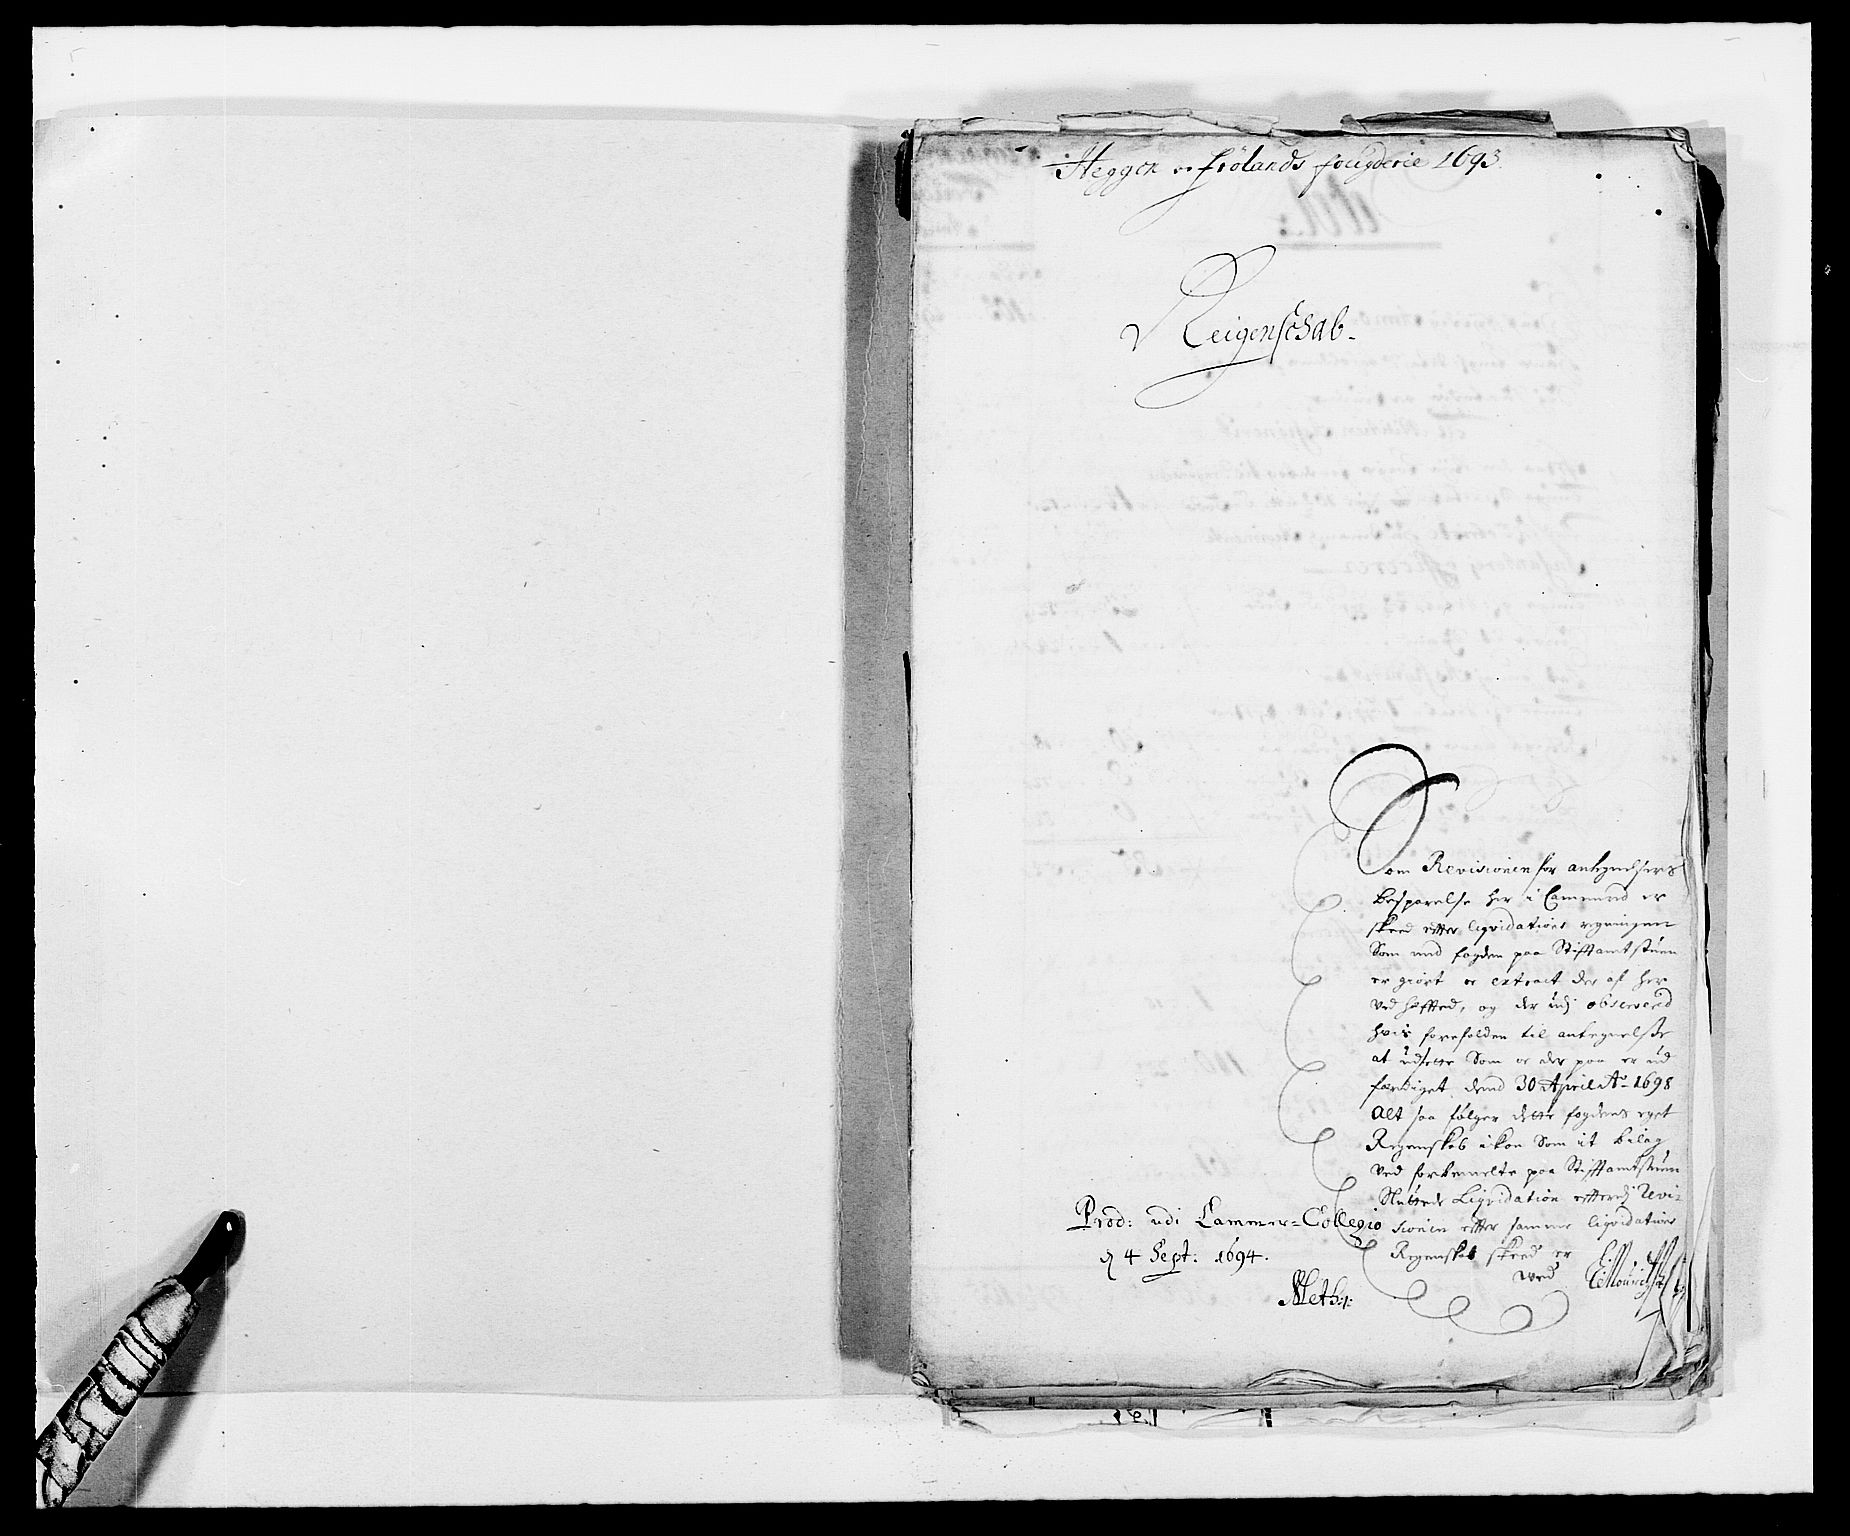 Heggen oc Frölands fougderie 1693.
Reigenschab
Som Revisionen for antegnelsers
besparelse her i Cammerid er
skeed efter liqvidations regningen
Som med fogden paa Stifftamtstuen
er giort oc extract der af her
ved heffted, og der udj observerid
hvis foreholden til antegnelse
at udsette Som oc der paa er ud
færdiget dend 30 April Ao 1698
Alt saa følger dette fogdens eget
Regenskab ikon Som it bilag
ved forbemelte paa Stifftamtstuen
Sluttede Liqvidation efterdj Revi-
sionen efter samme liqvidations
Regenskab skeed er
wed
Prod: udi Cammer-Collegio
d 4 Sept: 1694.
Meth: